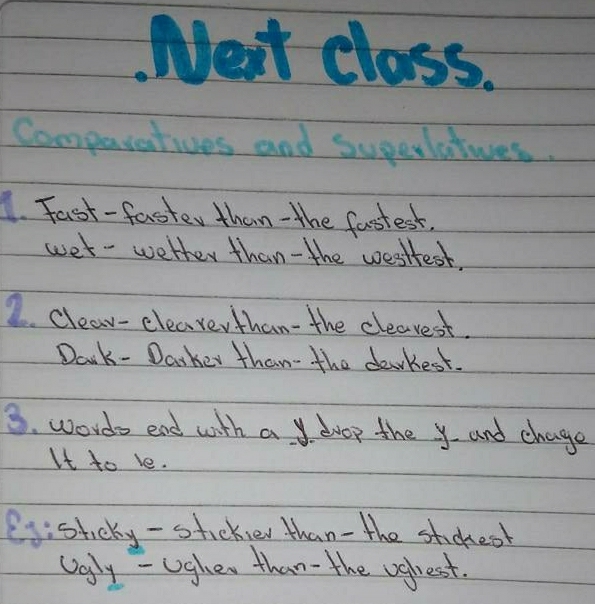 .Next class.
Comparatives and Superlatives.
1. Fast - faster than - the fastest.
wet - wetter than - the westtest.
2. Clear - clearer than - the clearest.
Dark - Darker than - the darkest.
3. Words end with a y drop the y and chage
It to ie.
Ej: Sticky - stickier than - the stickest
Ugly - uglier than - the ugliest.